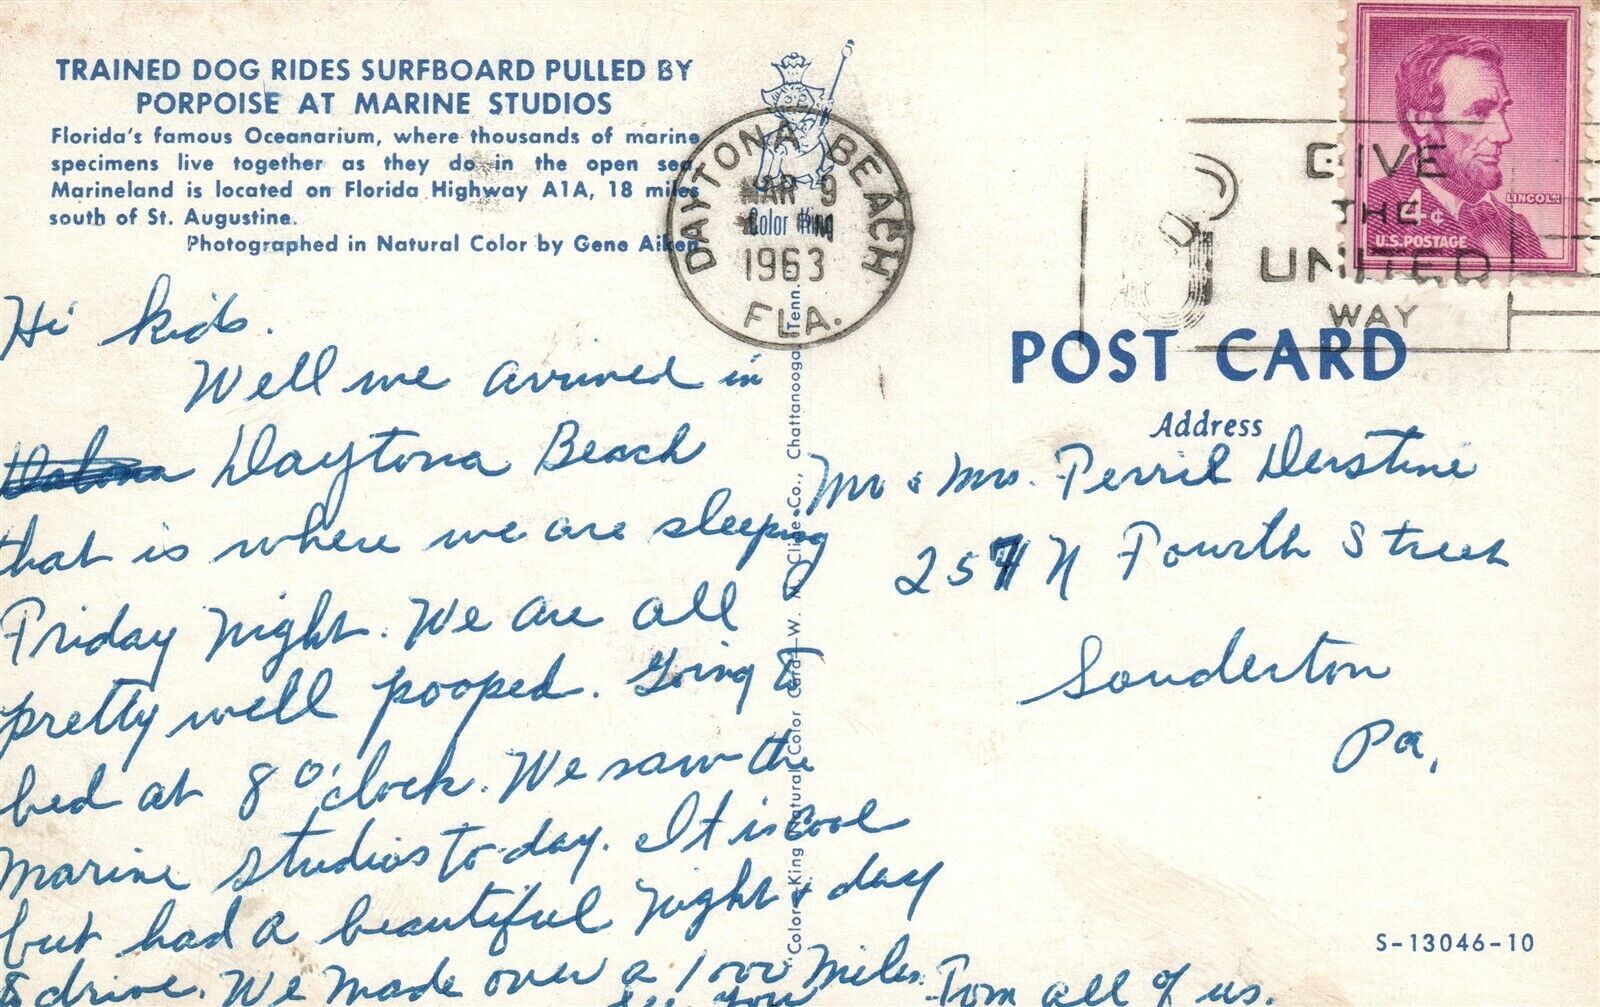 TRAINED DOG RIDES SURFBOARD PULLED BY
PORPOISE AT MARINE STUDIOS
Florida's famous Oceanarium, where thousands of marine
specimens live together as they do in the open sea.
Marineland is located on Florida Highway A1A, 18 miles
south of St. Augustine.
Photographed in Natural Color by Gene Aiken
Hi kids.
Well we arrived in
Daytona Beach
that is where we are sleeping
Friday night. We are all
pretty well pooped. Going to
bed at 8 o'clock. We saw the
Marine Studios to-day. It is cool
but had a beautiful night & day
to drive. We made over a 1000 miles.
See you
From all of us.
Color King
Color King Natural Color Card—W. M. Cline Co., Chattanooga, Tenn.
DAYTONA BEACH
MAR 9
1963
FLA.
GIVE
THE
UNITED
WAY
LINCOLN
4¢
U.S. POSTAGE
POST CARD
Address
Mr & Mrs. Perril Derstine
257 N Fourth Street
Souderton
Pa,
S-13046-10